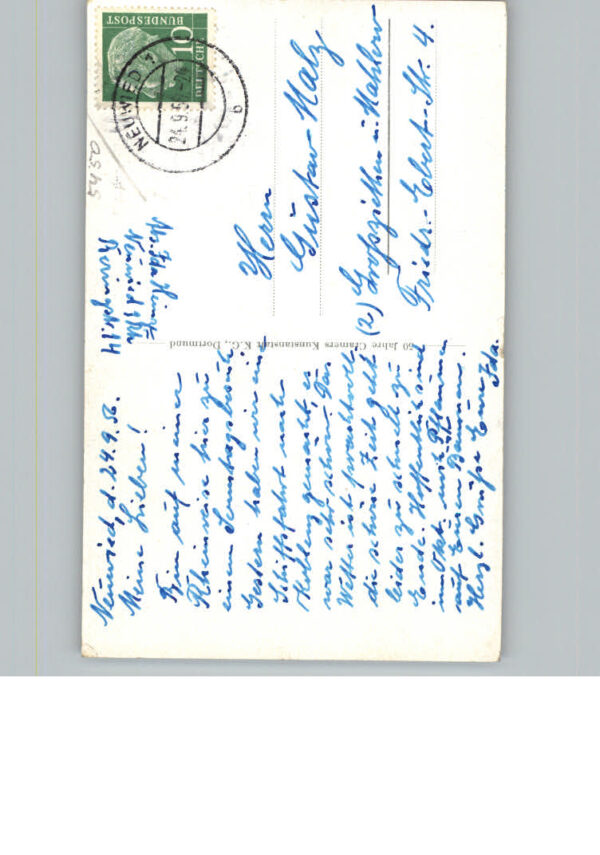 Neuwied, d. 24.9.56.
Meine Lieben!
Bin auf meiner
Rheinreise hier zu
einem Sonntagsbesuch.
Gestern haben wir eine
Schiffsfahrt nach
gemacht, es
war sehr schön. Das
Wetter ist prachtvoll,
die schöne Zeit geht
leider zu schnell zu
Ende. Hoffentlich sind
im Okt. noch Pflaumen
auf Euren Bäumen.
Herzl. Grüße Eure Ida.
60 Jahre Cramers Kunstanstalt K.G., Dortmund
Neuwied Rh
14
5450
DEUTSCHE
BUNDESPOST
10
NEUWIED 1
24.9.5
b
Herrn
Gustav Malz
(2) Großziethen ü. Mahlow
Friedr.-Ebert-Str. 4.